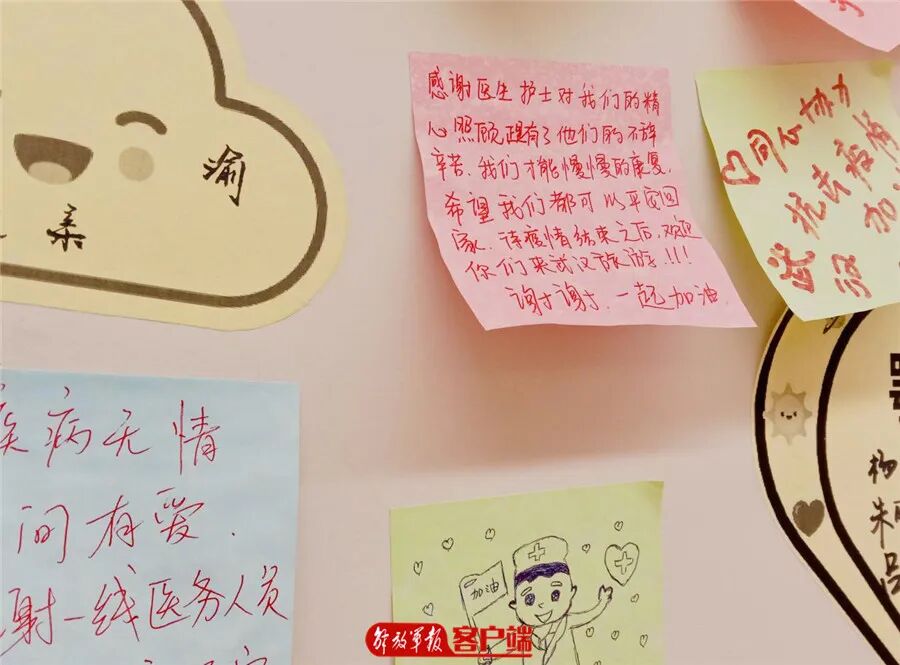 渝
柔
感谢医生护士对我们的精
心照顾有了他们的不辞
辛苦.我们才能慢慢的康复.
希望我们都可以平安回
家.待疫情结束之后,欢迎
你们来武汉旅游!!!
谢谢.一起加油.
同心协力
抗击疫情
加
疾病无情
间有爱.
谢一线医务人员
加油
杨
朱
吕
解放军报客户端